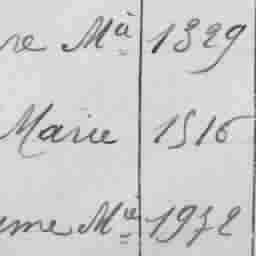 re Mᵃ 1329
Marie 1516
me Mⁱᵉ 1972